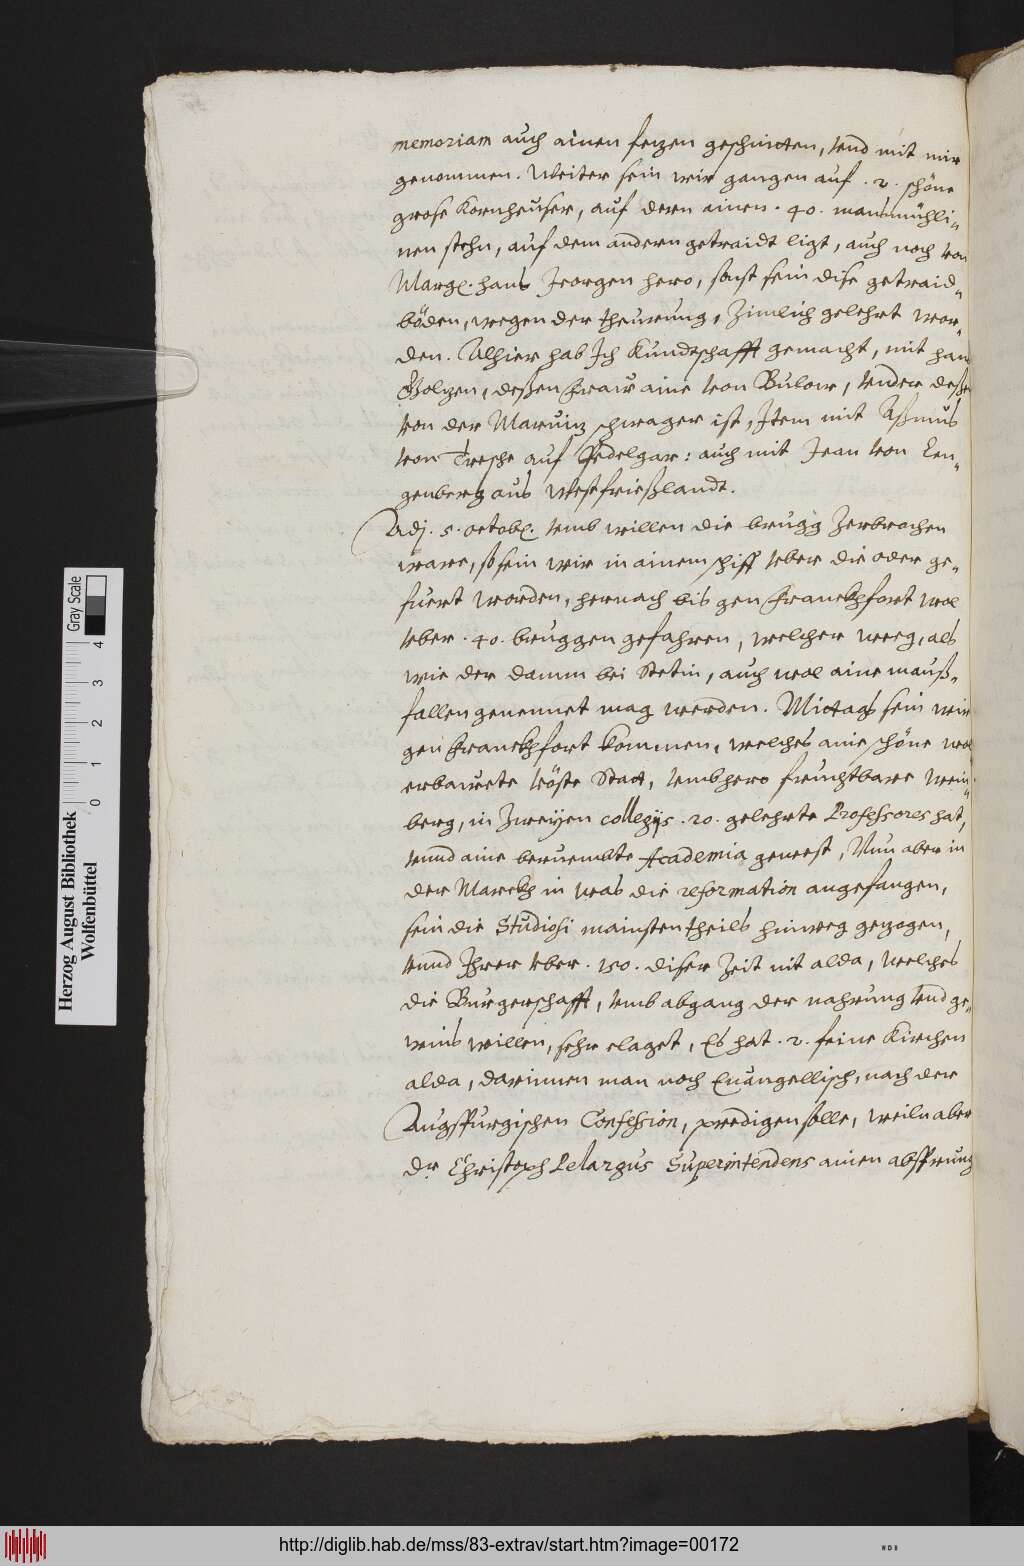 memoriam auch ainen fezen geschnitten, vnd mit mir
genommen. Weiter sein wir gangen auf .2. schöne
grose Kornheuser, auf dern ainen .40. mansmühli-
nen stehn, auf dem andern getraidt ligt, auch noch von
Marg. hans Jeorgen hero, sonst sein dise getraid-
böden, wegen der theurung, Zimlich gelehrt wor-
den. Alhier hab Ich Kundtschafft gemacht, mit hans
Golzen, deßen fraw aine von Bulow, vnder deße
von der Maruiz schwager ist, Item mit Aßmus
von Tresche auf Sedelgar: auch mit Jean von Len-
genberg aus Westfrießlandt.
Adj. 5. octob. vmb willen die brugg Zerbrochen
ware, so sein wir in ainem schiff vber die oder ge-
fuert worden, hernach bis gen franckhfort wol
vber .40. bruggen gefahren, welcher weeg, als
wie der damm bei Stetin, auch wol aine mauß-
fallen genennet mag werden. Mittags sein wir
gen franckhfort kommen, welches aine schöne wol
erbawete vöste Statt, vmbhero fruchtbare Wein-
berg, in Zweyen collegijs .20. gelehrte Professores hat,
vnnd aine beruembte Academia gewest, Nun aber in
der Marckh in was die reformation angefangen,
sein die Studiosi maistentheils hinweg gezogen,
vnnd Ihrer vber .150. diser Zeit nit alda, welches
die Burgerschafft, vmb abgang der nahrung vnd ge-
wins willen, sehr claget, Es hat .2. feine Kirchen
alda, darinnen man noch Euangellisch, nach der
Augspurgischen Confession, predigen solle, weiln aber
Dr. Christoph Pelargus Superintendens ainen absprung
Herzog August Bibliothek
Wolfenbüttel
Gray Scale
0 1 2 3 4
http://diglib.hab.de/mss/83-extrav/start.htm?image=00172